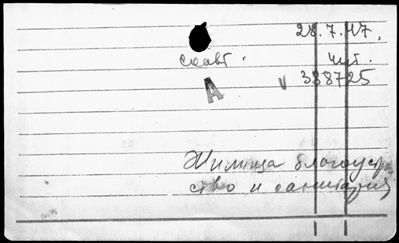 28.7.47.
соавт. чит.
А v 388725
Жилища благоустр
ство и санитария